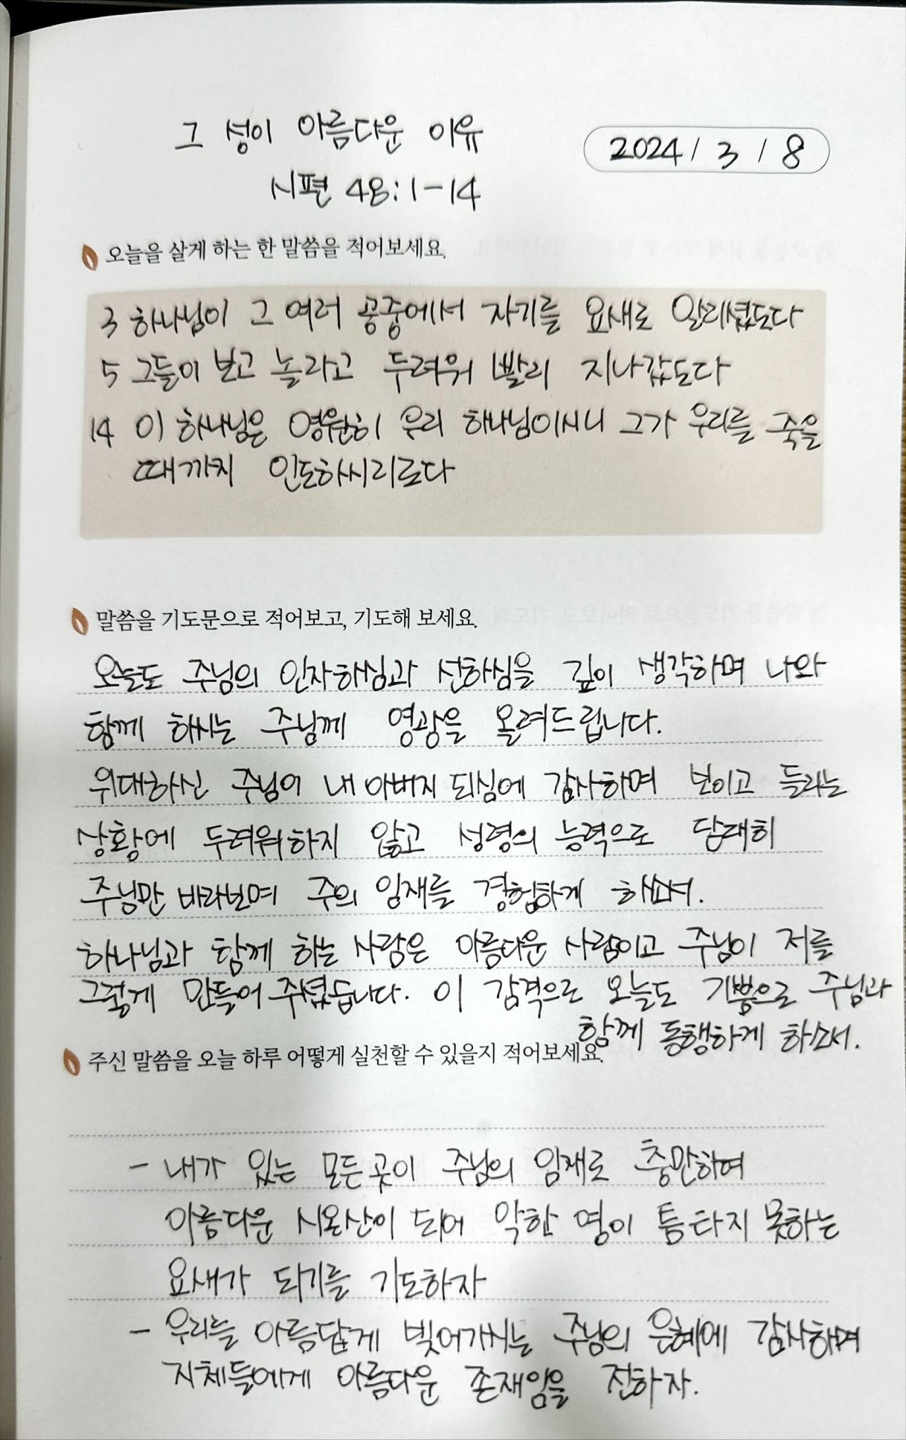 그 성이 아름다운 이유
2024 / 3 / 8
시편 48:1-14
오늘을 살게 하는 한 말씀을 적어보세요.
3 하나님이 그 여러 공중에서 자기를 요새로 알리셨도다
5 그들이 보고 놀라고 두려워 빨리 지나갔도다
14 이 하나님은 영원히 우리 하나님이시니 그가 우리를 죽을
때까지 인도하시리로다
말씀을 기도문으로 적어보고, 기도해 보세요.
오늘도 주님의 인자하심과 선하심을 깊이 생각하며 나와
함께 하시는 주님께 영광을 올려드립니다.
위대하신 주님이 내 아버지 되심에 감사하며 보이고 들리는
상황에 두려워하지 않고 성령의 능력으로 담대히
주님만 바라보며 주의 임재를 경험하게 하소서.
하나님과 함께 하는 사람은 아름다운 사람이고 주님이 저를
그렇게 만들어 주셨습니다. 이 감격으로 오늘도 기쁨으로 주님과
함께 동행하게 하소서.
주신 말씀을 오늘 하루 어떻게 실천할 수 있을지 적어보세요.
- 내가 있는 모든 곳이 주님의 임재로 충만하여
아름다운 시온산이 되어 악한 영이 틈타지 못하는
요새가 되기를 기도하자
- 우리를 아름답게 빚어가시는 주님의 은혜에 감사하며
지체들에게 아름다운 존재임을 전하자.